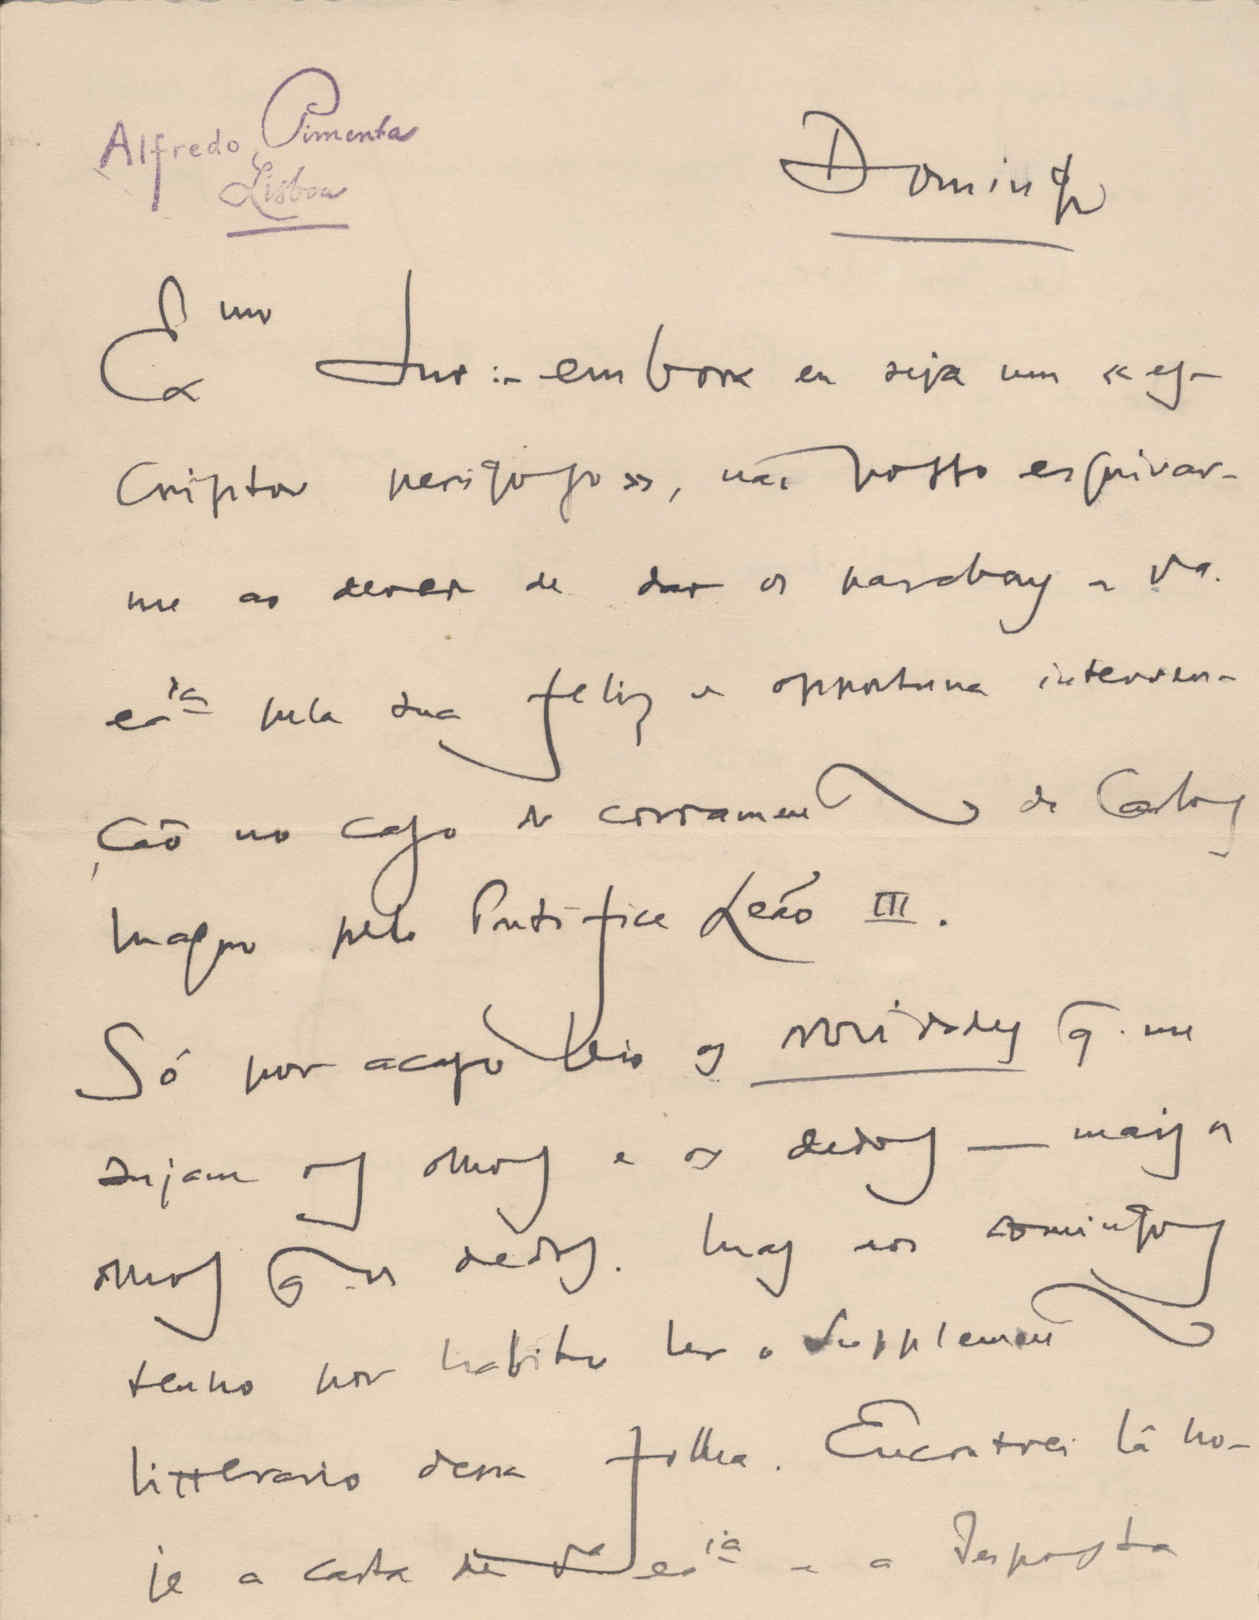 Alfredo Pimenta
Lisboa
Domingo
Exmo Snr:- embora eu seja um «es-
criptor perigoso», não posso esquivar-
me ao dever de dar os parabens a Va.
exia pela sua feliz e opportuna interven-
ção no caso do coroamento de Carlos
Magno pelo Pontifice Leão III.
Só por acaso leio as Novidades q. me
sujam os olhos e os dedos — mais os
olhos q os dedos. Mas aos domingos
tenho por habito ler o Supplemento
litterario dessa folha. Encontrei lá ho-
je a carta de Va exia e a resposta